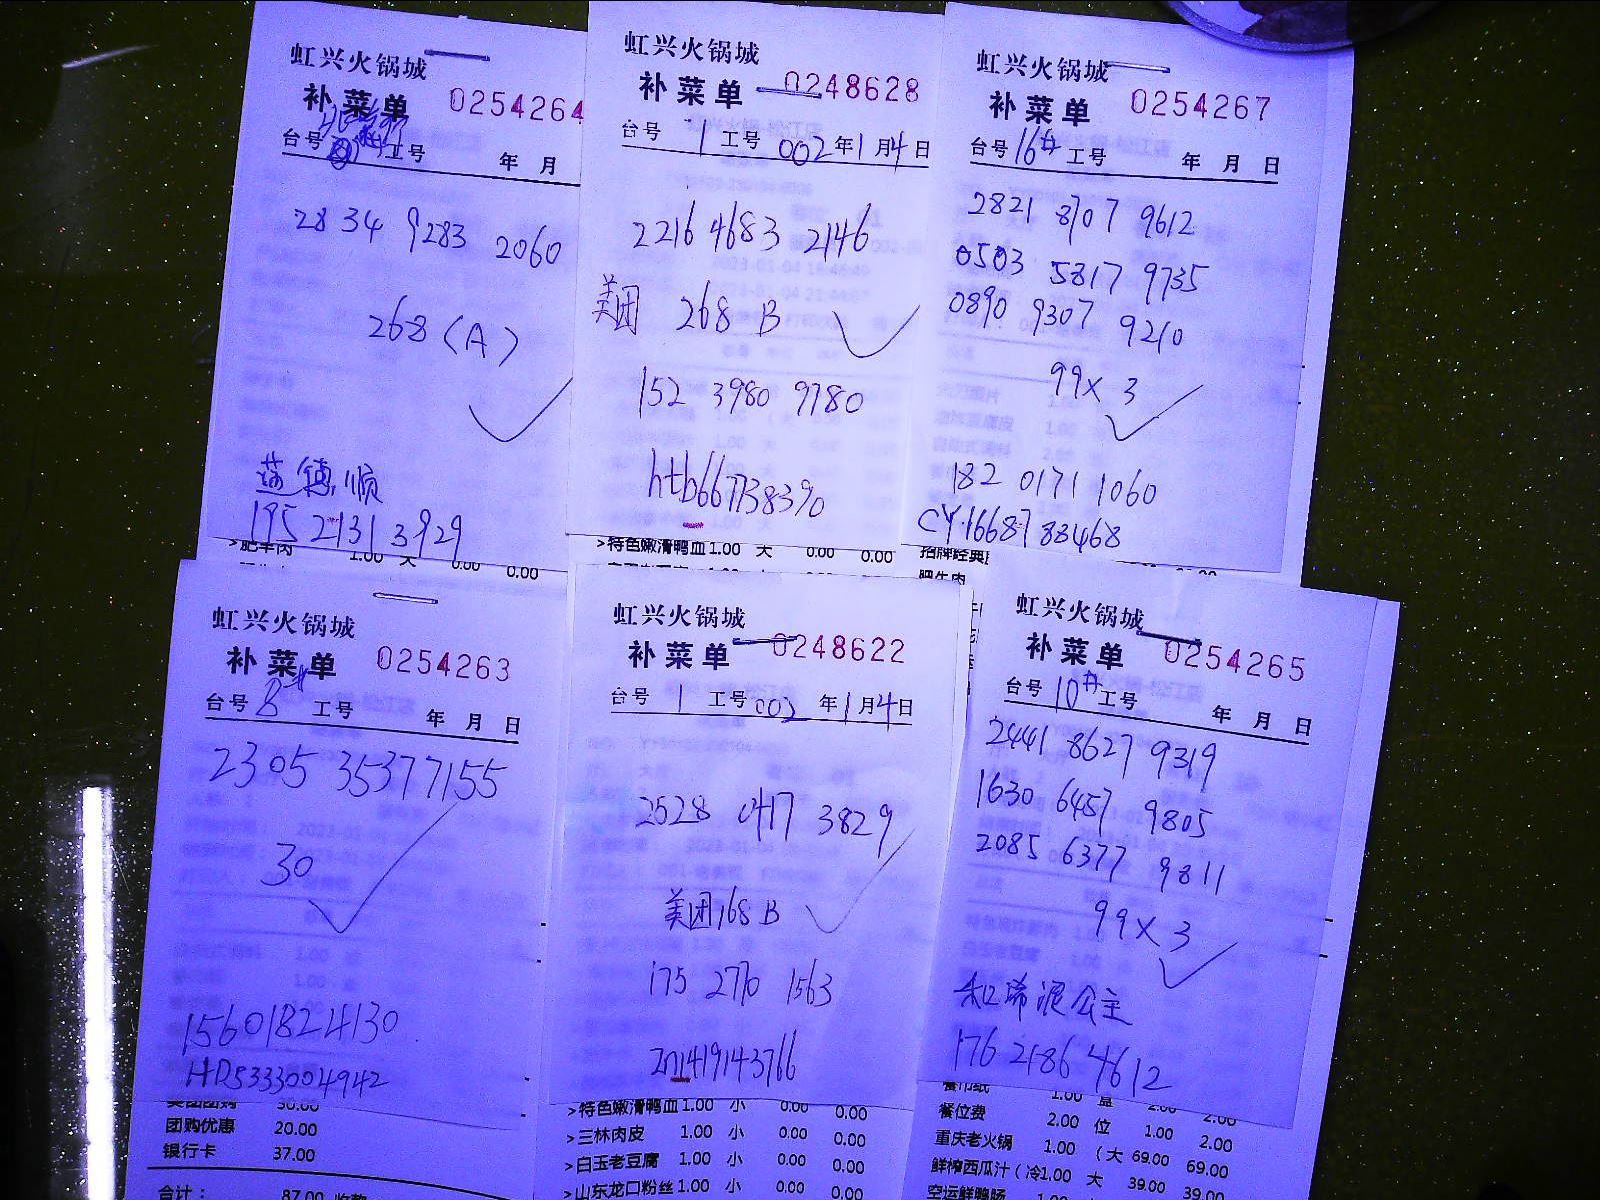 虹兴火锅城
补菜单 0254264
台号 工号 年 月
2834 9283 2060
268 (A)
德顺
195 2131 3929
>肥羊肉 1.00 大 0.00 0.00
虹兴火锅城
补菜单 0248628
台号 1 工号 002 年 1 月 4 日
2216 4683 2146
美团 268 B
152 3980 9780
htb667738390
>特色嫩滑鸭血 1.00 大 0.00 0.00
虹兴火锅城
补菜单 0254267
台号 16# 工号 年 月 日
2821 8707 9612
0503 5817 9735
0890 9307 9210
99x3
182 0171 1060
CY.16687 88468
招牌经典
肥牛肉
虹兴火锅城
补菜单 0254263
台号 8# 工号 年 月 日
2305 35377155
30
15601824130
HD5333004942
美团团购 50.00
团购优惠 20.00
银行卡 37.00
合计: 87.00
虹兴火锅城
补菜单 0248622
台号 1 工号 002 年 1 月 4 日
2528 0417 3829
美团 168 B
175 2770 1563
zn1419143766
>特色嫩滑鸭血 1.00 小 0.00 0.00
>三林肉皮 1.00 小 0.00 0.00
>白玉老豆腐 1.00 小 0.00 0.00
>山东龙口粉丝 1.00 小 0.00 0.00
虹兴火锅城
补菜单 0254265
台号 10# 工号 年 月 日
2441 8627 9319
1630 6457 9805
2085 6377 9811
99x3
和珠泥公主
176 2186 4612
餐巾纸 1.00 盒 2.00 2.00
餐位费 2.00 位 1.00 2.00
重庆老火锅 1.00 (大 69.00 69.00
鲜榨西瓜汁(冷 1.00 大 39.00 39.00
空运鲜鸭肠 1.00